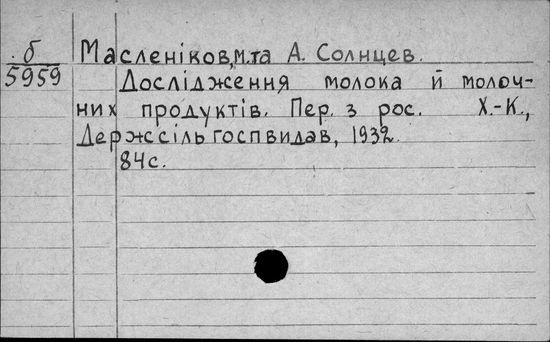 б
5959
Масленіков, М. та А. Солнцев.
Дослідження молока й молоч-
них продуктів. Пер. з рос. Х.-К.,
Держсільгоспвидав, 1932.
84с.